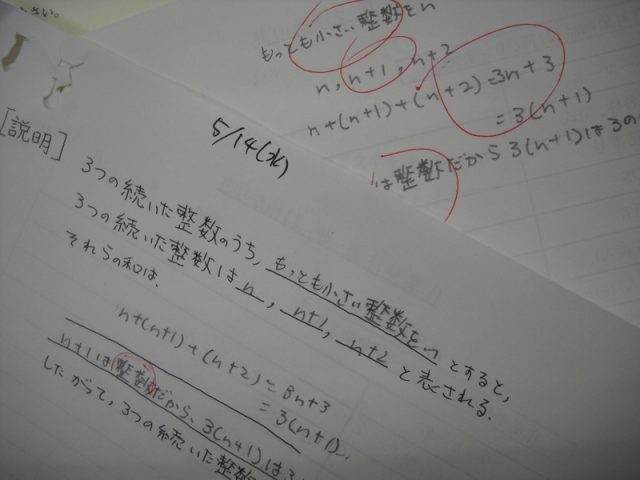 さい。
もっとも小さい整数をn
n, n+1, n+2
n+(n+1)+(n+2)=3n+3
=3(n+1)
は整数だから3(n+1)は3の
5/14(水)
[説明]
3つの続いた整数のうち、もっとも小さい整数をnとすると、
3つの続いた整数はn, n+1, n+2と表される。
それらの和は、
n+(n+1)+(n+2)=3n+3
=3(n+1)
n+1は整数だから、3(n+1)は3
したがって、3つの続いた整数